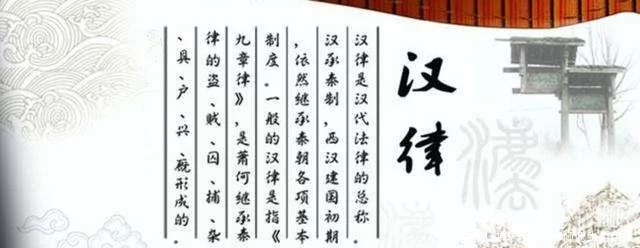 汉律
汉律是汉代法律的总称.
汉承秦制,西汉建国初期
,依然继承秦朝各项基本
制度.一般的汉律是指《
九章律》,是萧何继承秦
律的盗、贼、囚、捕、杂
、具、户、兴、厩形成的.
漢